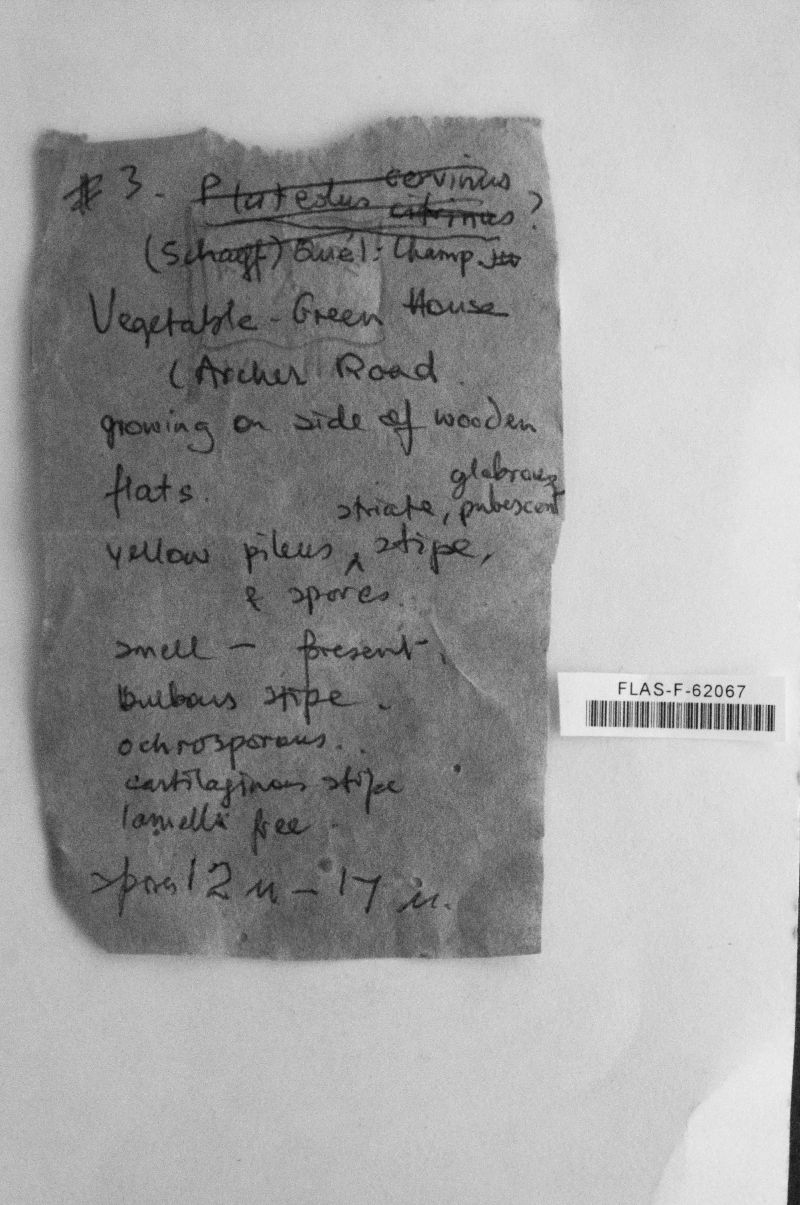 # 3. Pluteolus cervinus
citrinus ?
(Schaeff) Quél: Champ.
Vegetable - Green House
(Archer Road.
growing on side of wooden
flats.
glabrous
striate, pubescent
yellow pileus ^ stipe,
& spores.
smell - present.
bulbous stipe.
ochrosporous..
cartilaginous stipe
lamella free.
spores 12 u - 17 u.
FLAS-F-62067